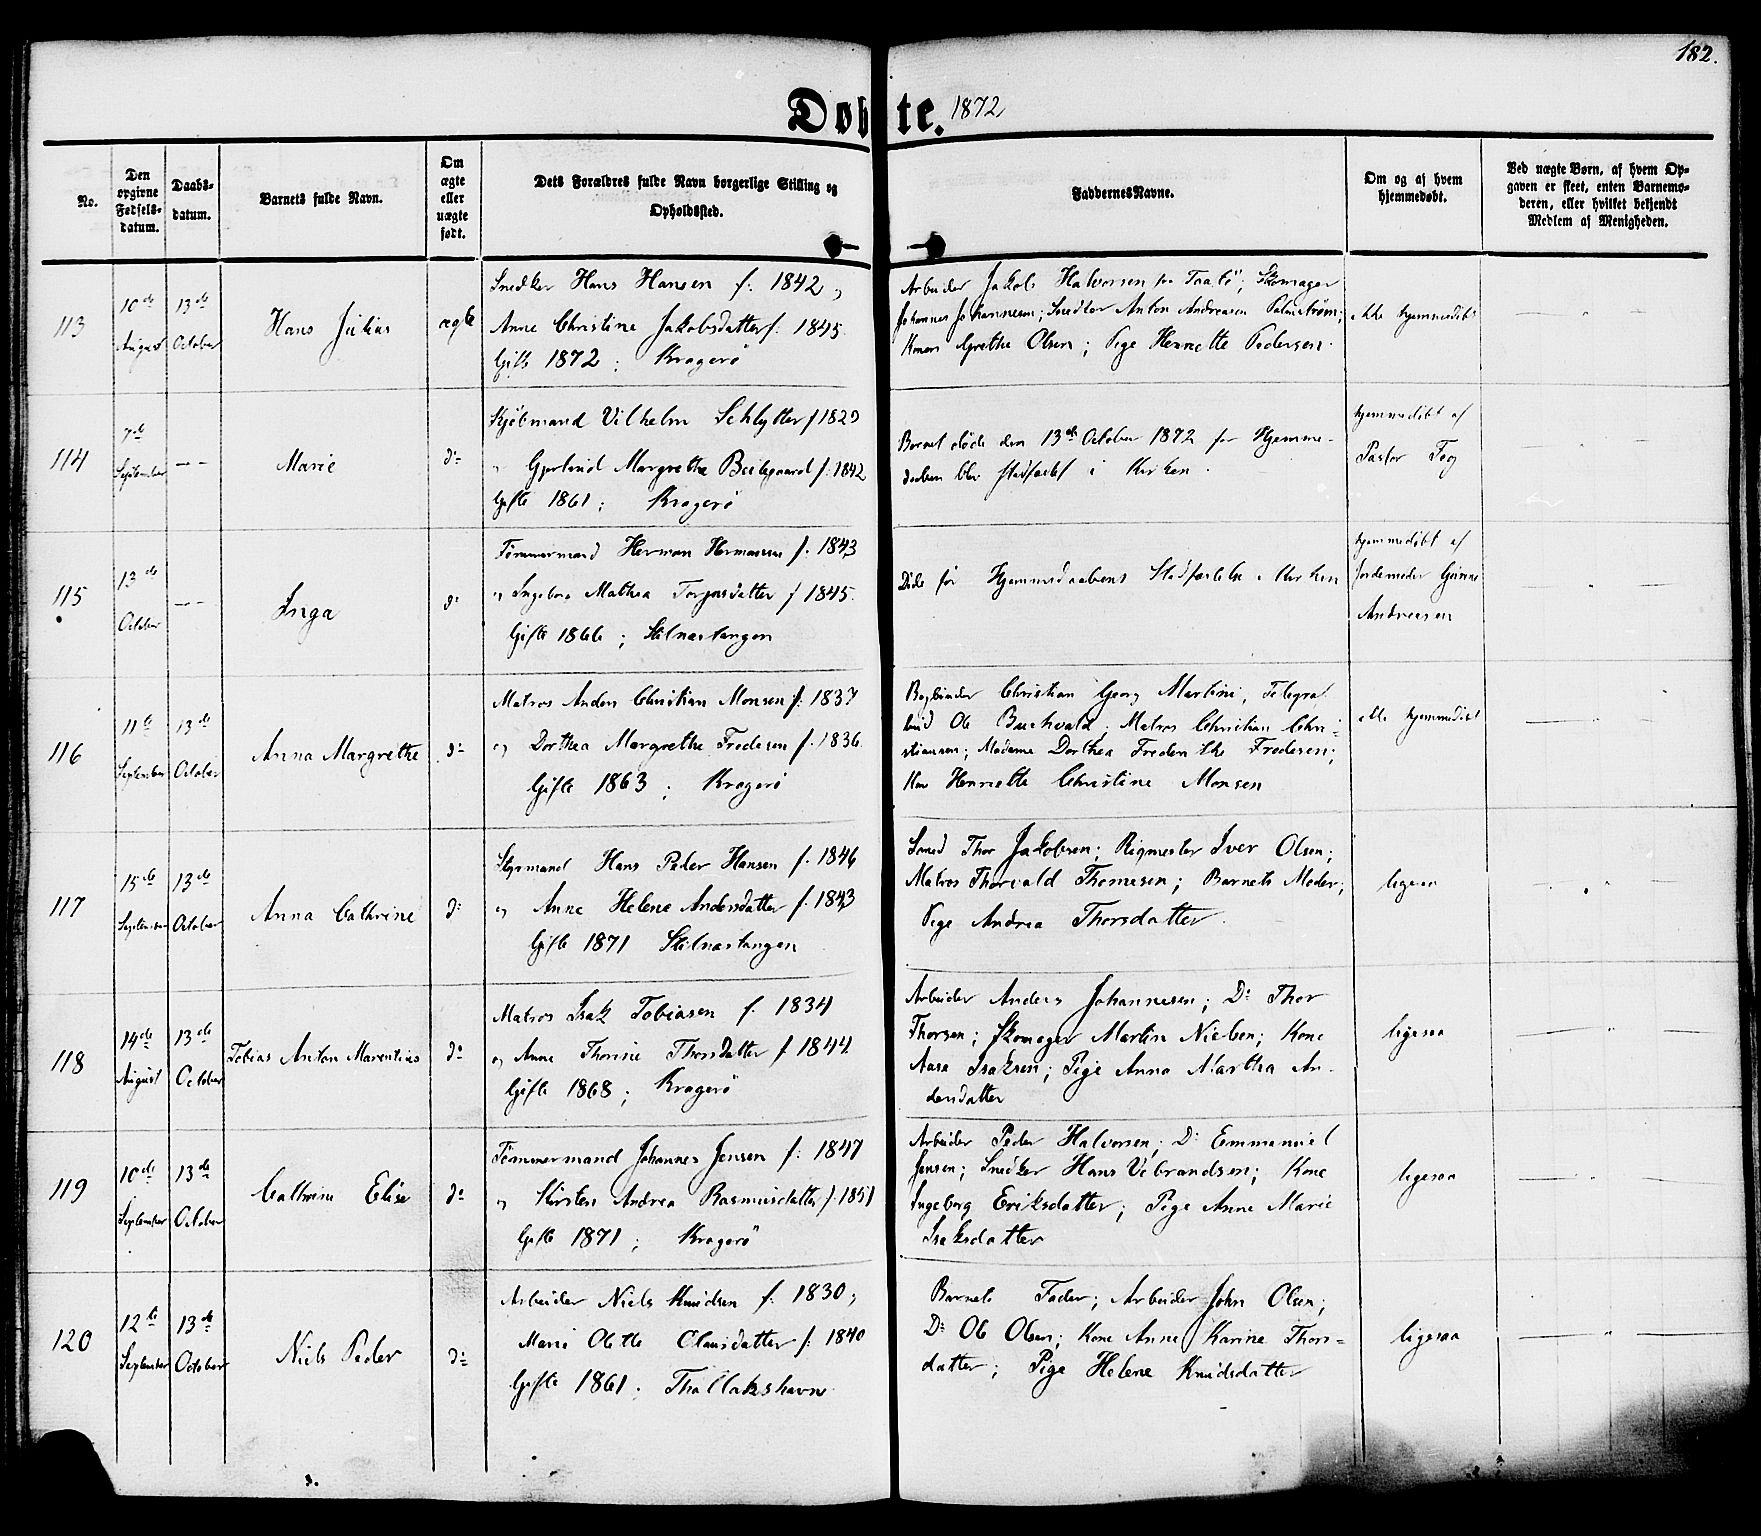 182.
Døbte. 1872
No.
Den opgivne Fødsels-datum.
Daabs-datum.
Barnets fulde Navn.
Om ægte eller uægte født.
Dets Forældres fulde Navn borgerlige Stilling og Opholdssted.
Faddernes Navne.
Om og af hvem hjemmedøbt.
Ved uægte Børn, af hvem Op-
gaven er skeet, enten Barnemo-
deren, eller hvilket bekjendt
Medlem af Menigheden.
113
10de August
13de October
Hans Julius
ægte
Snedker Hans Hansen f. 1842 og
Anne Christine Jakobsdatter f. 1845
Gift 1872; Kragerø
Arbeider Jakob Halvorsen fra Taatø; Skomager
Johannes Johannesen; Snedker Anton Andreasen Palmstrøm;
Konen Grethe Olsen; Pige Henriette Pedersen
ikke hjemmedøbt
114
7de September
- -
Marie
do
Kjøbmand Vilhelm Schlytter f 1829
Margrethe f. 1842
Gifte 1861; Kragerø
Barnet døde den 13de October 1872 før Hjemme-
daaben blev stadfæstet i Kirken.
hjemmedøbt af
Pastor
115
13de October
- -
Inga
do
Tømmermand Herman Hermansen f. 1843
og Ingeborg Mathea Torjusdatter f 1845.
Gifte 1866; Stilnestangen
Døde før Hjemmedaabens Stadfæstelse i Kirken
hjemmedøbt af
Jordemoder
Andreasen
116
11te September
13de October
Anna Margrethe
do
Matros Anders Christian Monsen f. 1837
og Dorthea Margrethe Fredesen f. 1836
Gifte 1863; Kragerø
Bogbinder Christian Georg Martini; Telegraf
bud Ole Buchvald; Matros Christian Chri-
stiansen; Madame Dorthea Frederikke Fredesen;
Kone Henriette Christine Monsen
ikke hjemmedøbt
117
15de September
13de October
Anna Cathrine
do
Styrmand Hans Peder Hansen f. 1846
og Anne Helene Andersdatter f. 1843
Gifte 1871 Stilnestangen
Smed Thor Jakobsen; Rigmester Iver Olsen;
Matros Thorvald Thomesen; Barnets Moder;
Pige Andrea Thorsdatter.
ligesaa
118
14de August
13de October
Tobias Anton Marentius
do
Matros Isak Tobiasen f. 1834
og Anne Thorine Thorsdatter f 1844
Gifte 1868; Kragerø
Arbeider Anders Johannesen; Do Thor
Thorsen; Skomager Martin Nielsen; Kone
Aase Isaksen; Pige Anna Martha An-
dersdatter
ligesaa
119
10de September
13de October
Cathrine Elise
do
Tømmermand Johannes Jensen f. 1847
og Kirsten Andrea Rasmusdatter f. 1851
Gifte 1871; Kragerø
Arbeider Peder Halvorsen; Do Emmanuel
Jensen; Snedker Hans Vebrandsen; Kone
Ingeborg Eriksdatter; Pige Anne Marie
Isaksdatter
ligesaa
120
12te September
13de October
Niels Peder
do
Arbeider Niels Knudsen f. 1830;
Marie Olette Clausdatter f. 1840
Gifte 1861; Thallakshavn
Barnets Fader; Arbeider John Olsen;
Do Ole Olsen; Kone Anne Karine Thors-
datter; Pige Helene Knudsdatter
ligesaa